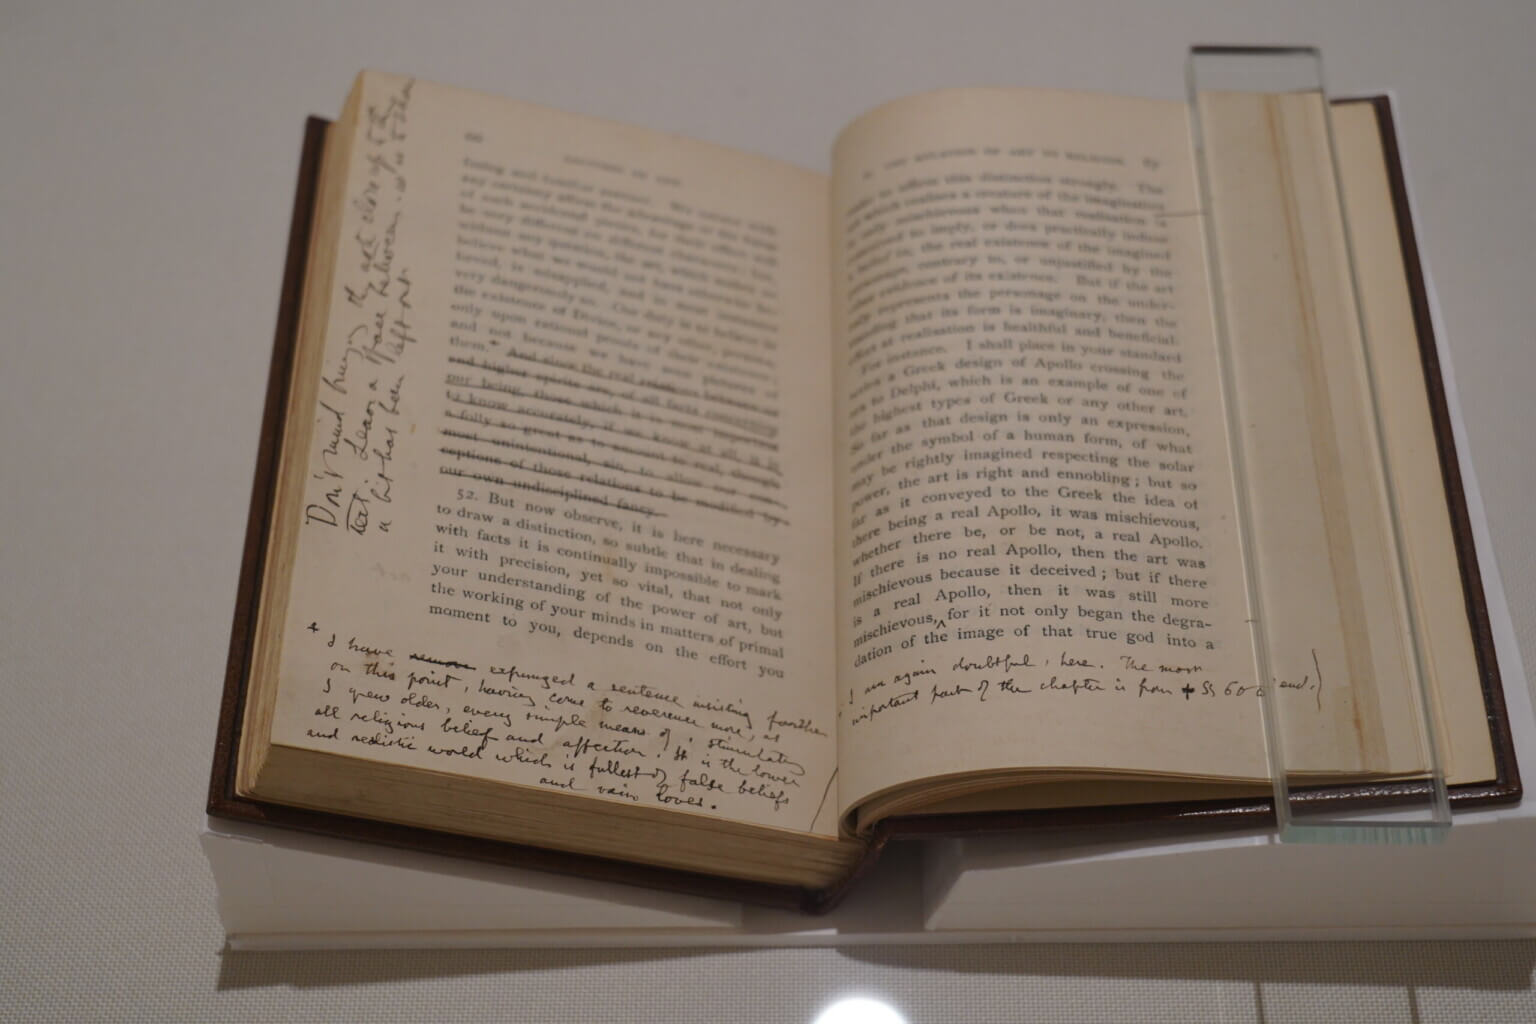 Don't mind bringing the
text. Leave a space between.
a bit has been left out.
66
LECTURES ON ART
fixing and familiar
any certainty affirm the advantage or the
of such accidental
be very different on different characters; but,
without any question, the art, which makes us
believe what we would not have otherwise be-
lieved, is misapplied, and in most instances
very dangerously so. Our duty is to believe in
the existence of Divine, or any other, persons,
only upon rational proofs of their existence;
and not because we have seen pictures of
them.* And since the real relations between us
and higher spirits are, of all facts concerning
our being, those which it is most important
to know accurately, if we know at all, it is
a folly so great as to amount to real, though
most unintentional, sin, to allow our con-
ceptions of those relations to be modified by
our own undisciplined fancy.
52. But now observe, it is here necessary
to draw a distinction, so subtle that in dealing
with facts it is continually impossible to mark
it with precision, yet so vital, that not only
your understanding of the power of art, but
the working of your minds in matters of primal
moment to you, depends on the effort you
I have expunged a sentence insisting farther
on this point, having come to reverence more, as
I grew older, every simple means of stimulating
all religious belief and affection. It is the lower
and realistic world which is fullest of false beliefs
and vain loves.
II. THE RELATION OF ART TO RELIGION. 67
make to affirm this distinction strongly. The
art which realises a creature of the imagination
is only mischievous when that realisation is
conceived to imply, or does practically induce
a belief in, the real existence of the imagined
personage, contrary to, or unjustified by the
other evidence of its existence. But if the art
only represents the personage on the under-
standing that its form is imaginary, then the
effort at realisation is healthful and beneficial.
For instance. I shall place in your standard
series a Greek design of Apollo crossing the
sea to Delphi, which is an example of one of
the highest types of Greek or any other art.
So far as that design is only an expression,
under the symbol of a human form, of what
may be rightly imagined respecting the solar
power, the art is right and ennobling; but so
far as it conveyed to the Greek the idea of
there being a real Apollo, it was mischievous,
whether there be, or be not, a real Apollo.
If there is no real Apollo, then the art was
mischievous because it deceived; but if there
is a real Apollo, then it was still more
mischievous, for it not only began the degra-
dation of the image of that true god into a
I am again doubtful, here. The most
important part of the chapter is from § 60 to end.